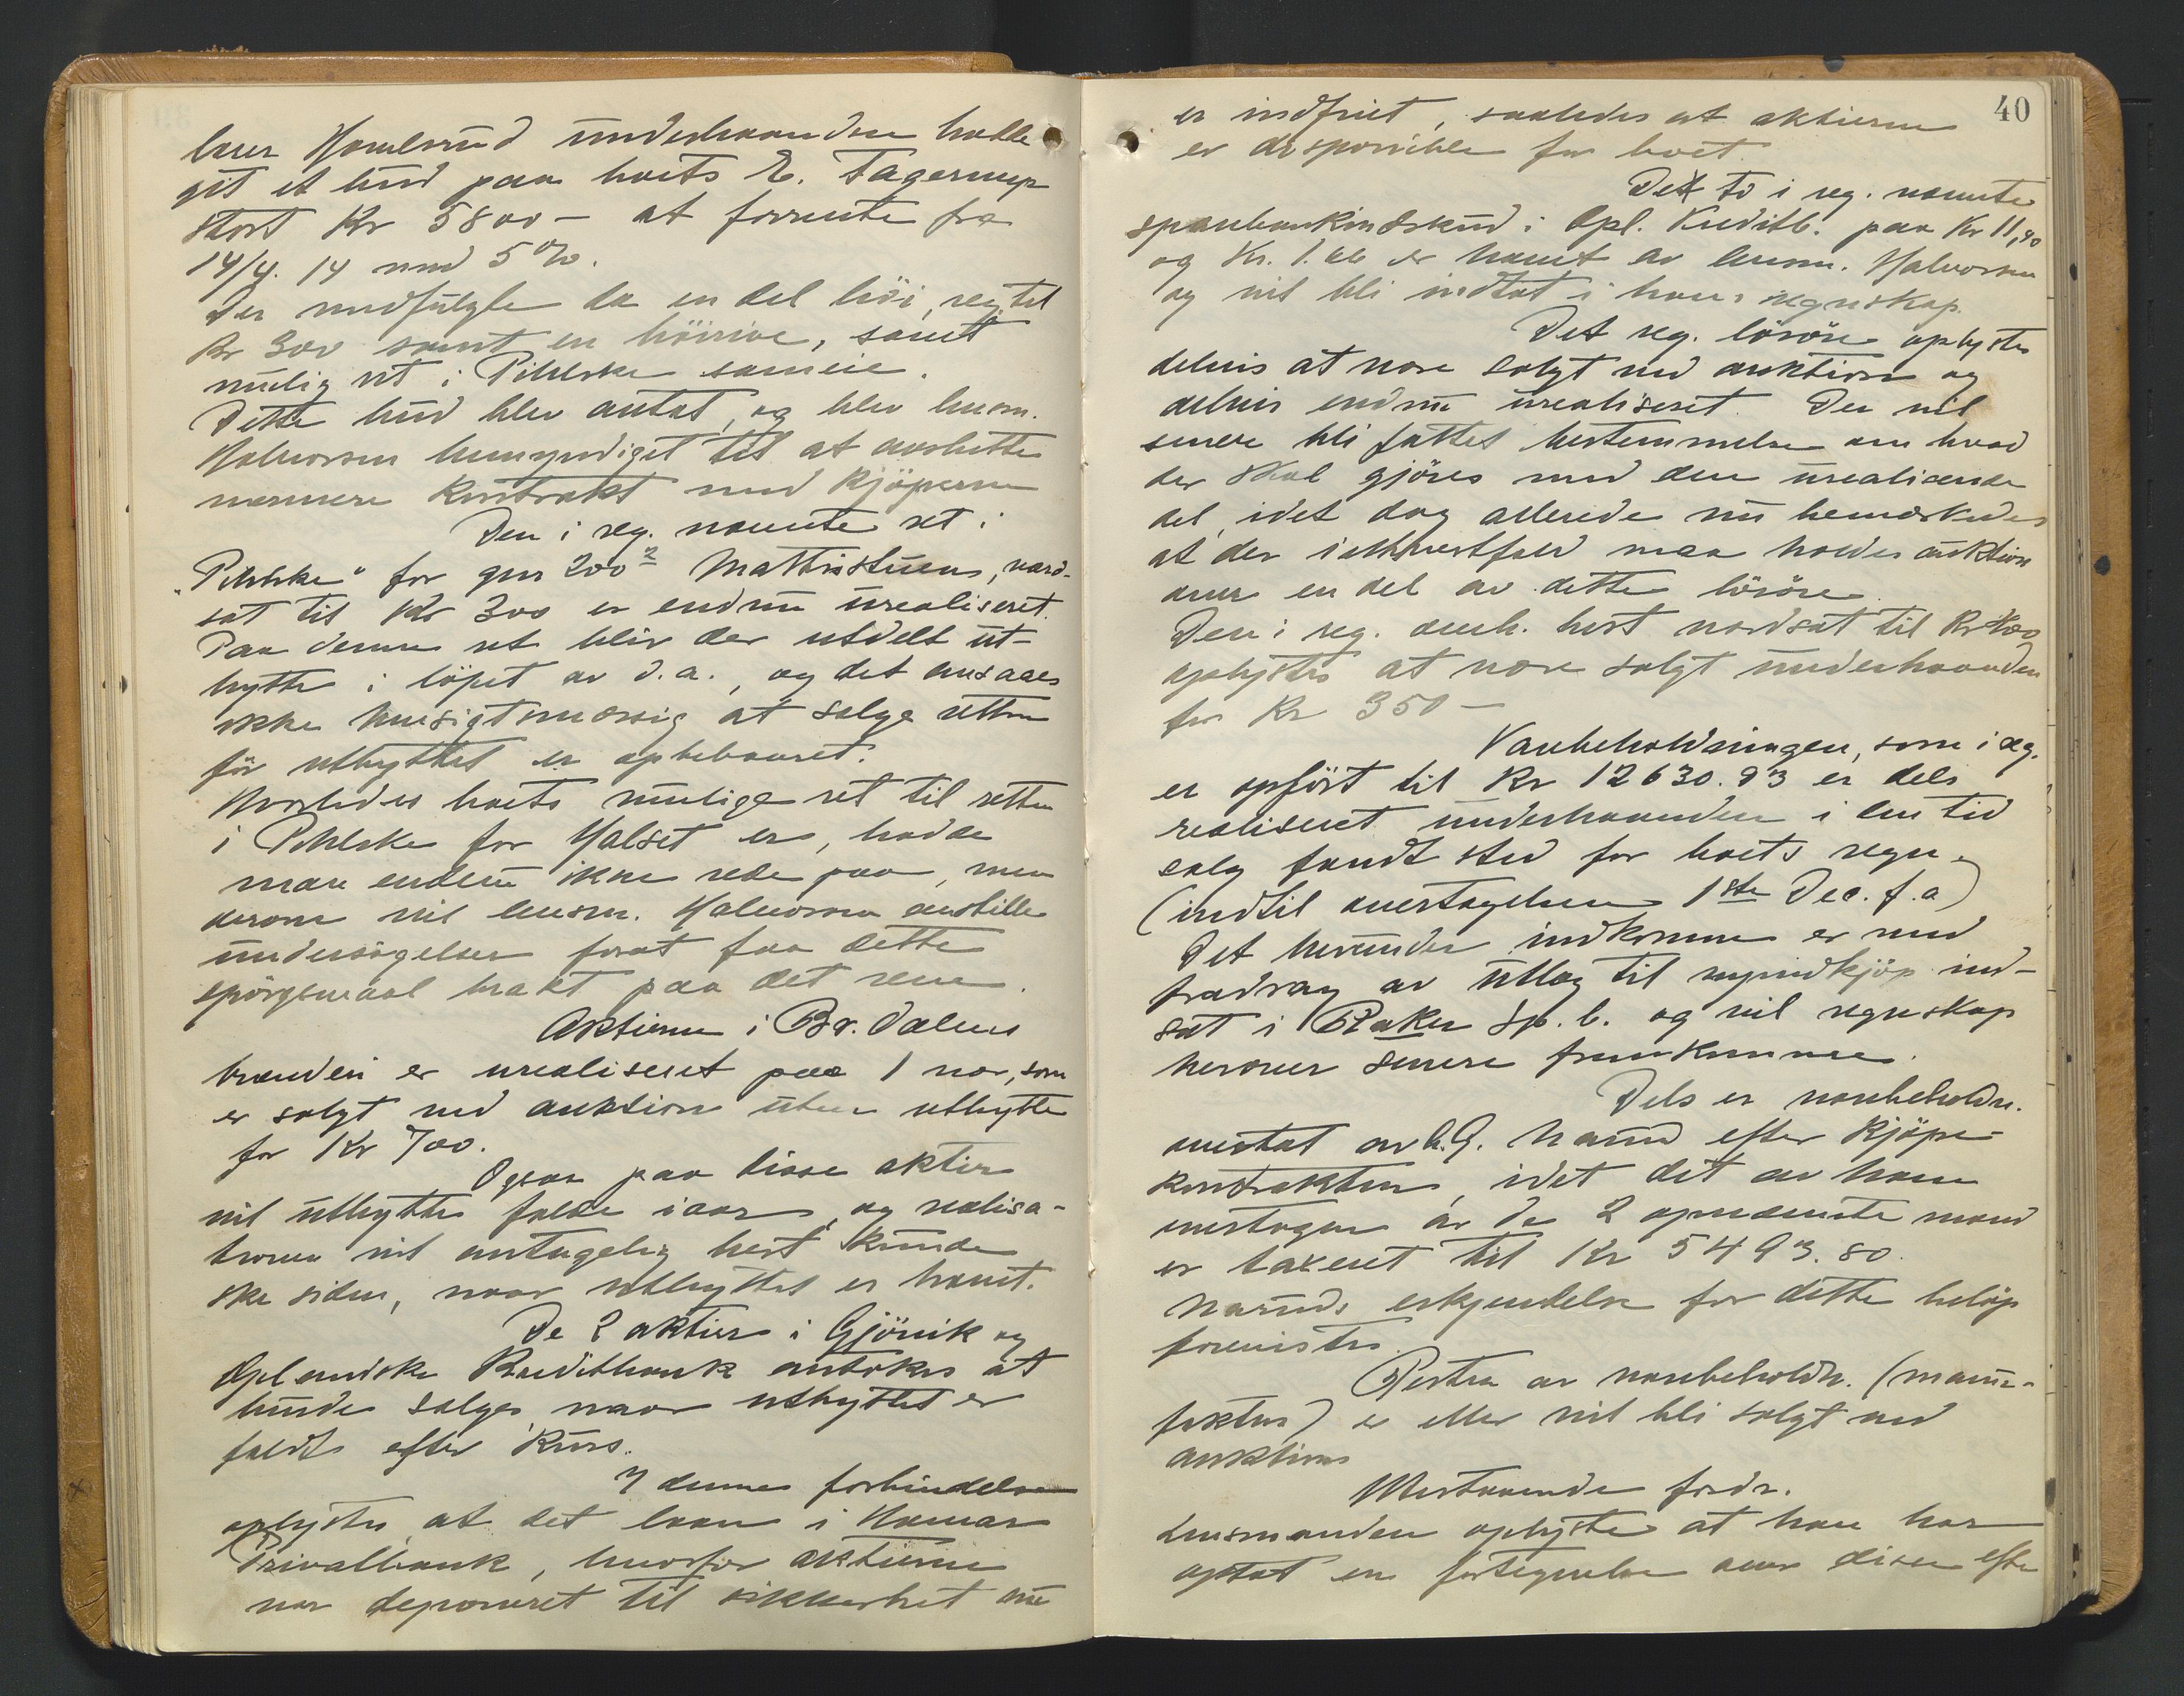 larer Hamlerud underhaanden hadde
git et bud paa boets E. Fagernup
stort Kr 5800 – at forrente fra
14/4. 14 med 5 %.
Der medfulgte da en del höi, reg. til
Kr 300 samt en höirive, samt
mulig ret i Pihlske sameie.
Dette bud blev antat, og blev lensm.
Halvorsen bemyndiget til at avslutte
nærmere kontrakt med kjöperen
Den i reg. nævnte ret i
"Pihlske" for gnr 200² Mattisstuens, værd-
sat til Kr 300 er endnu urealiseret.
Paa denne ret blir der utdelt ut-
bytte i löpet av d.a., og det ansaaes
ikke hensigtsmæssig at sælge retten
för utbyttet er oppebaaret.
Hvorledes boets mulige ret til retten
i Pihlske for Halset er, hadde
man endnu ikke rede paa, men
derom vil lensm. Halvorsen anstille
undersögelser forat faa dette
spörgsmaal bragt paa det rene.
Aktierne i Br. Dalens
brænderi er urealiseret paa 1 nær, som
er solgt ved auktion uten utbytte
for Kr 700.
Ogsaa paa disse aktier
vil utbytte falde iaar, og realisa-
tionen vil antagelig best kunde
ske siden, naar utbyttet er hævet.
De 2 aktier i Gjövik og
Oplandske Kreditbank antokes at
burde sælges naar utbyttet er
faldt efter kurs.
I denne forbindelse
oplystes at det laan i Hamar
Privatbank, hvorfor aktierne
var deponeret til sikkerhet nu
40
er indfriet, saaledes at aktierne
er disponible for boet.
De to i reg. nævnte
sparebankindskud i Opl. Kreditb. paa Kr 11,90
og Kr. 1.66 er hævet av lensm. Halvorsen
og vil bli indtat i hans regnskap.
Det reg. lösöre oplystes
delvis at være solgt ved auktion og
delvis endnu urealiseret. Der vil
senere bli fattet bestemmelse om hvad
der skal gjöres med den urealiserede
del, idet dog allerede nu bemerkedes
at der ialfald maa holdes auktion
over en del av dette lösöre.
Den i reg. anh. hest værdsat til Kr 400
oplystes at være solgt underhaanden
for Kr 350 –
Varebeholdningen, som i reg.
er opfört til Kr 12630.93 er dels
realiseret underhaanden i den tid
salg fandt sted for boets regn.
(indtil overtagelsen 1ste Dec. f.a)
Det herunder indkomne er med
fradrag av utlæg til nyindkjöp ind-
sat i Braker Sp.b. og vil regnskap
herover senere fremkomme.
Dels er varebeholdn.
overtat av A.G. Narud efter kjöpe-
kontrakten, idet det av ham
overtagne av de 2 opnævnte mænd
er taxeret til Kr 5493.80.
Naruds erkjendelse for dette belöp
forevistes.
Resten av varebeholdn. (manu-
faktur) er eller vil bli solgt ved
auktion
Utestaaende fordr.
Lensmanden oplyste at han har
optat en fortegnelse over disse efter